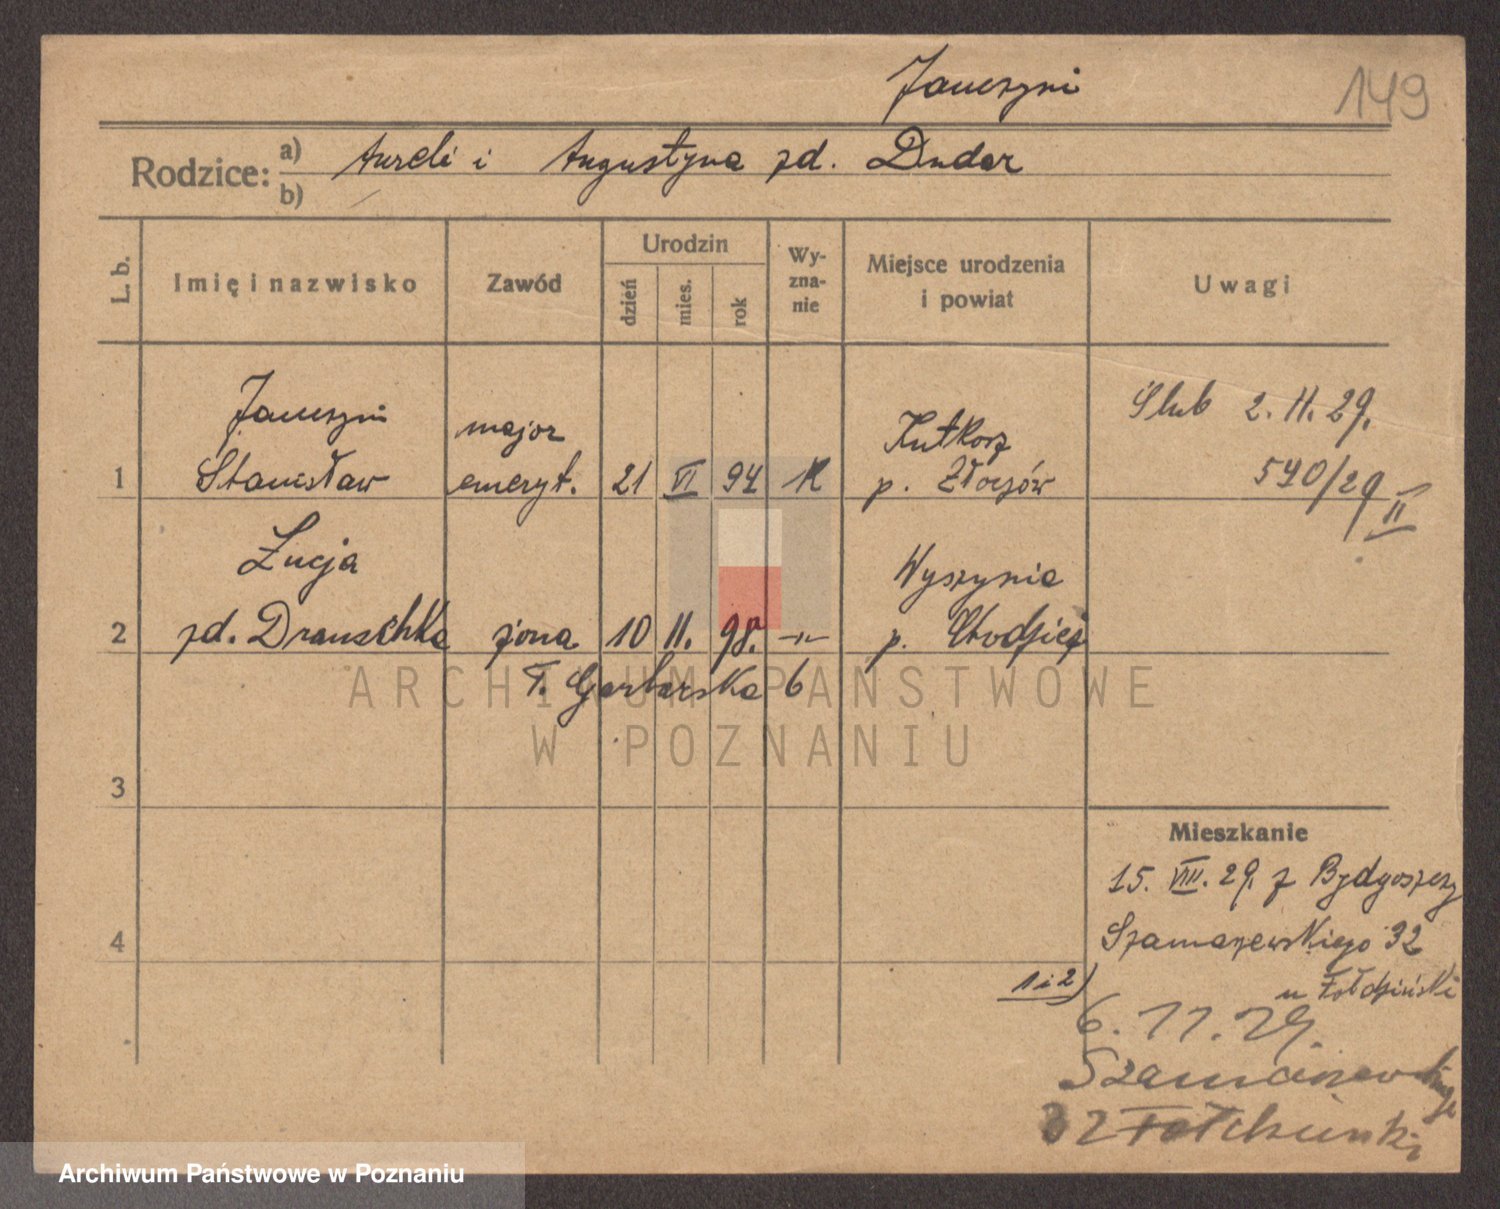 Jaueszyni
149
Rodzice: a) Aureli i Augustyna zd. Dudar
b)
L. b. Imię i nazwisko Zawód Urodzin dzień mies. rok Wyznanie Miejsce urodzenia i powiat Uwagi
Ślub 2. 11. 29.
major Kutkorz
1 Stanisław emeryt. 21 VI 94 K p. Złoczów 590/29 II
Łucja Wyszynie
2 zd. Drauschka żona 10 11. 98. -"- p. Chodzież
T. Garbarska 6
3
Mieszkanie
15. VIII. 29. z Bydgoszczy
4 Szamarzewskiego 32
1 i 2) u
6. 11. 29.
Szamarzewskiego
32
ARCHIWUM PAŃSTWOWE
W POZNANIU
Archiwum Państwowe w Poznaniu